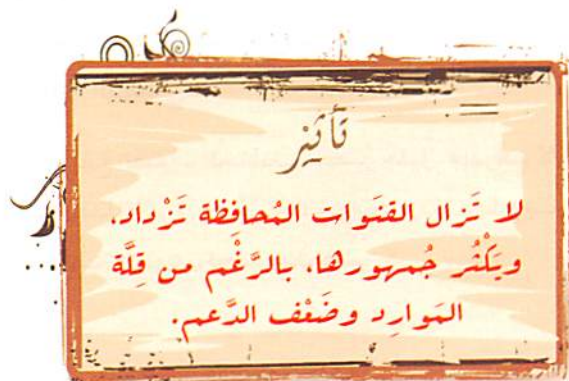 تأثير
لا تَزال القنَوات المُحافِظة تَزْداد،
ويَكْثُر جُمهورها، بالرَّغْم من قِلَّة
المَوارِد وضَعْف الدَّعم.